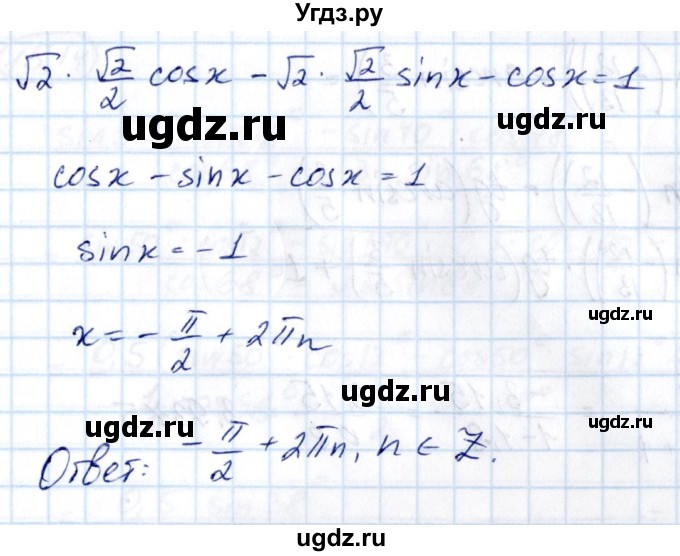 Угдз.ру
√2 · √2/2 cosx - √2 · √2/2 sinx - cosx = 1
ugdz.ru
ugdz.ru
cosx - sinx - cosx = 1
sinx = -1
ugdz.ru
x = - π/2 + 2πn
ugdz.ru
ugdz.ru
Ответ: - π/2 + 2πn, n ∈ Z.
ugdz.ru